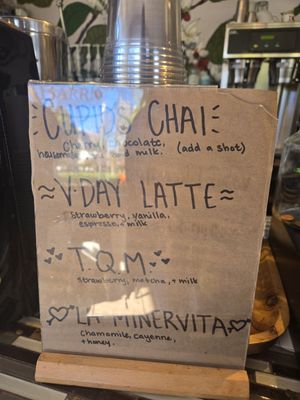 BARRIO
CUPIDS CHAI
cherry, chocolate,
housemade and milk. (add a shot)
≈ V-DAY LATTE ≈
strawberry, vanilla,
espresso, + milk
T.Q.M.
strawberry, matcha, + milk
LA MINERVITA
Chamomile, cayenne,
+ honey.